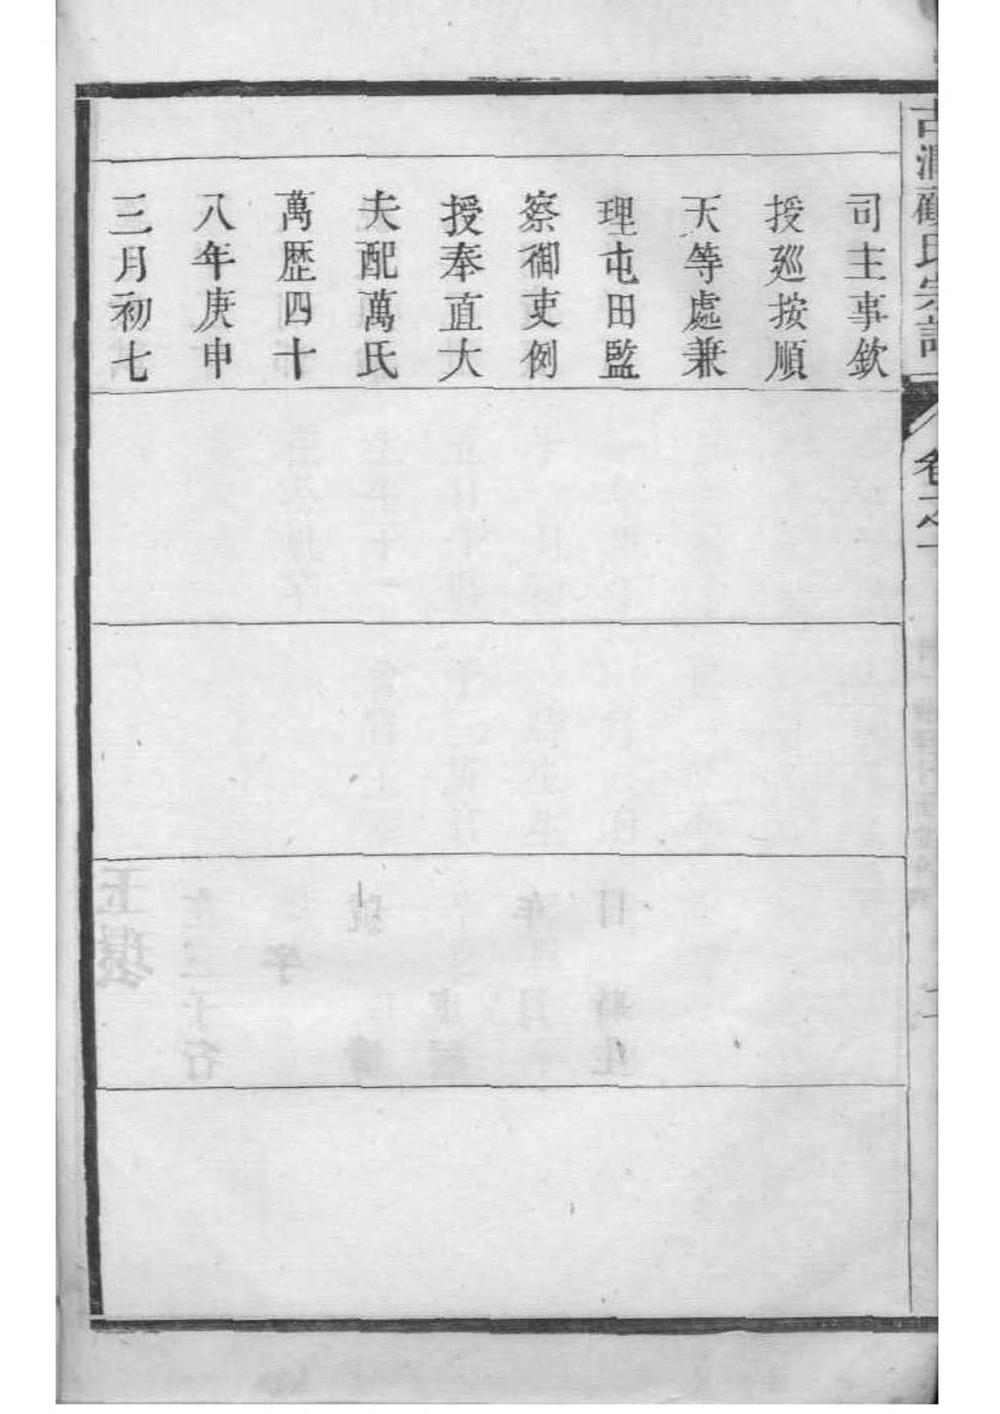 司主事欽
授巡按順
天等處兼
理屯田監
察御吏例
授奉直大
夫配萬氏
萬歴四十
八年庚申
三月初七
卷之一